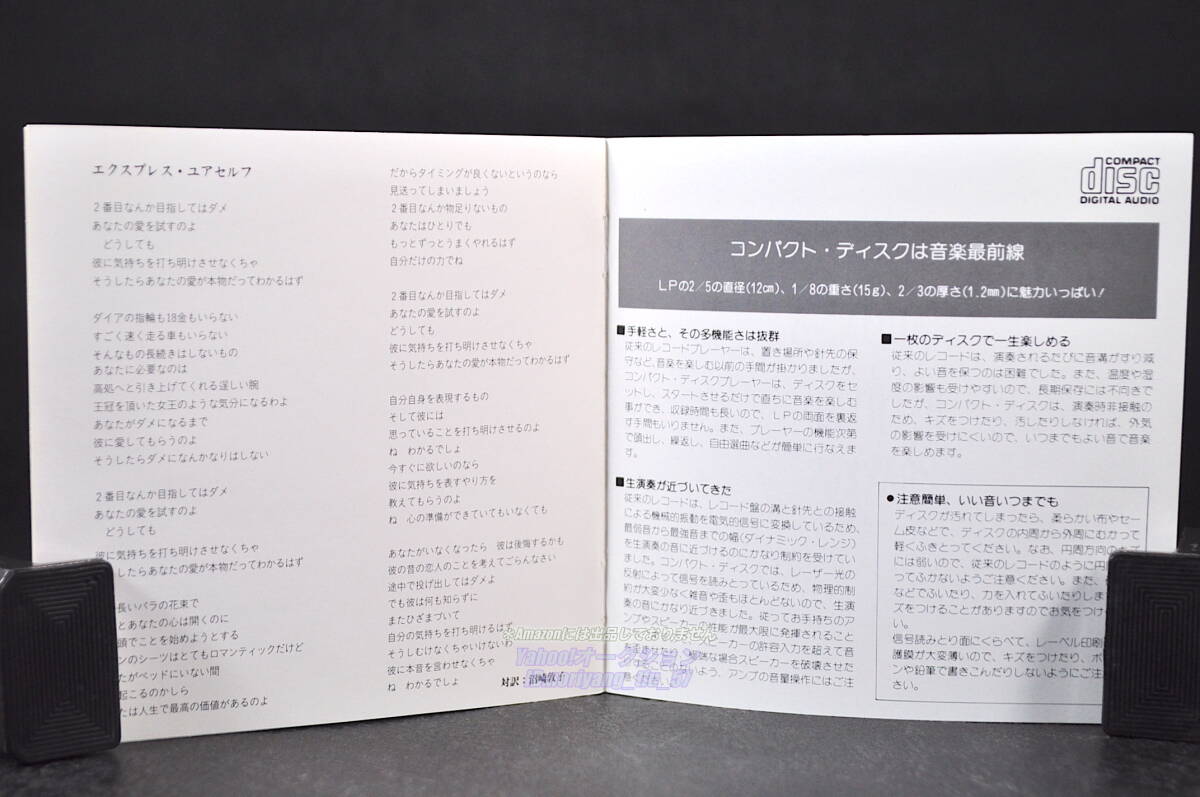 エクスプレス・ユアセルフ
2番目なんか目指してはダメ
あなたの愛を試すのよ
どうしても
彼に気持ちを打ち明けさせなくちゃ
そうしたらあなたの愛が本物だってわかるはず
ダイアの指輪も18金もいらない
すごく速く走る車もいらない
そんなもの長続きはしないもの
あなたに必要なのは
高処へと引き上げてくれる逞しい腕
王冠を頂いた女王のような気分になるわよ
あなたがダメになるまで
彼に愛してもらうのよ
そうしたらダメになんかなりはしない
2番目なんか目指してはダメ
あなたの愛を試すのよ
どうしても
彼に気持ちを打ち明けさせなくちゃ
したらあなたの愛が本物だってわかるはず
長いバラの花束で
とあなたの心は開くのに
頭でことを始めようとする
ンのシーツはとてもロマンティックだけど
たがベッドにいない間
起こるのかしら
たは人生で最高の価値があるのよ
だからタイミングが良くないというのなら
見送ってしまいましょう
2番目なんか物足りないもの
あなたはひとりでも
もっとずっとうまくやれるはず
自分だけの力でね
2番目なんか目指してはダメ
あなたの愛を試すのよ
どうしても
彼に気持ちを打ち明けさせなくちゃ
そうしたらあなたの愛が本物だってわかるはず
自分自身を表現するもの
そして彼には
思っていることを打ち明けさせるのよ
ね わかるでしょ
今すぐに欲しいのなら
彼に気持ちを表すやり方を
教えてもらうのよ
ね 心の準備ができていてもいなくても
あなたがいなくなったら 彼は後悔するかも
彼の昔の恋人のことを考えてごらんなさい
途中で投げ出してはダメよ
でも彼は何も知らずに
またひざまづいて
自分の気持ちを打ち明けるはず
そうしむけなくちゃいけないわ
彼に本音を言わせなくちゃ
ね わかるでしょ
対訳：沼崎敦子
COMPACT
disc
DIGITAL AUDIO
コンパクト・ディスクは音楽最前線
LPの2/5の直径(12cm)、1/8の重さ(15g)、2/3の厚さ(1.2mm)に魅力いっぱい!
■手軽さと、その多機能さは抜群
従来のレコードプレーヤーは、置き場所や針先の保
守など、音楽を楽しむ以前の手間が掛かりましたが、
コンパクト・ディスクプレーヤーは、ディスクをセ
ットし、スタートさせるだけで直ちに音楽を楽しむ
事ができ、収録時間も長いので、LPの両面を裏返
す手間もいりません。また、プレーヤーの機能次第
で頭出し、繰返し、自由選曲などが簡単に行なえま
す。
■生演奏が近づいてきた
従来のレコードは、レコード盤の溝と針先との接触
による機械的振動を電気的信号に変換しているため、
最弱音から最強音までの幅(ダイナミック・レンジ)
を生演奏の音に近づけるのにかなり制約を受けてい
ました。コンパクト・ディスクでは、レーザー光の
反射によって信号を読みとっているため、物理的制
約が大変少なく雑音や歪もほとんどないので、生演
奏の音にかなり近づきました。従ってお手持ちのア
ンプやスピーカーの性能が最大限に発揮されること
スピーカーの許容入力を超えて音
な場合スピーカーを破壊させた
よう、アンプの音量操作にはご注
意く
■一枚のディスクで一生楽しめる
従来のレコードは、演奏されるたびに音溝がすり減
り、よい音を保つのは困難でした。また、温度や湿
度の影響も受けやすいので、長期保存には不向きで
したが、コンパクト・ディスクは、演奏時非接触の
ため、キズをつけたり、汚したりしなければ、外気
の影響を受けにくいので、いつまでもよい音で音楽
を楽しめます。
●注意簡単、いい音いつまでも
ディスクが汚れてしまったら、柔らかい布やセー
ム皮などで、ディスクの内周から外周にむかって
軽くふきとってください。なお、円周方向の
には弱いので、従来のレコードのように円
ってふかないようご注意ください。また、
などでふいたり、力を入れてふいたりしま
ズをつけることがありますのでお気をつけ
信号読みとり面にくらべて、レーベル印刷
護膜が大変薄いので、キズをつけたり、ボ
ンや鉛筆で書きこんだりしないようにご注
さい。
※Amazonには出品しておりません
Yahoo!オークション